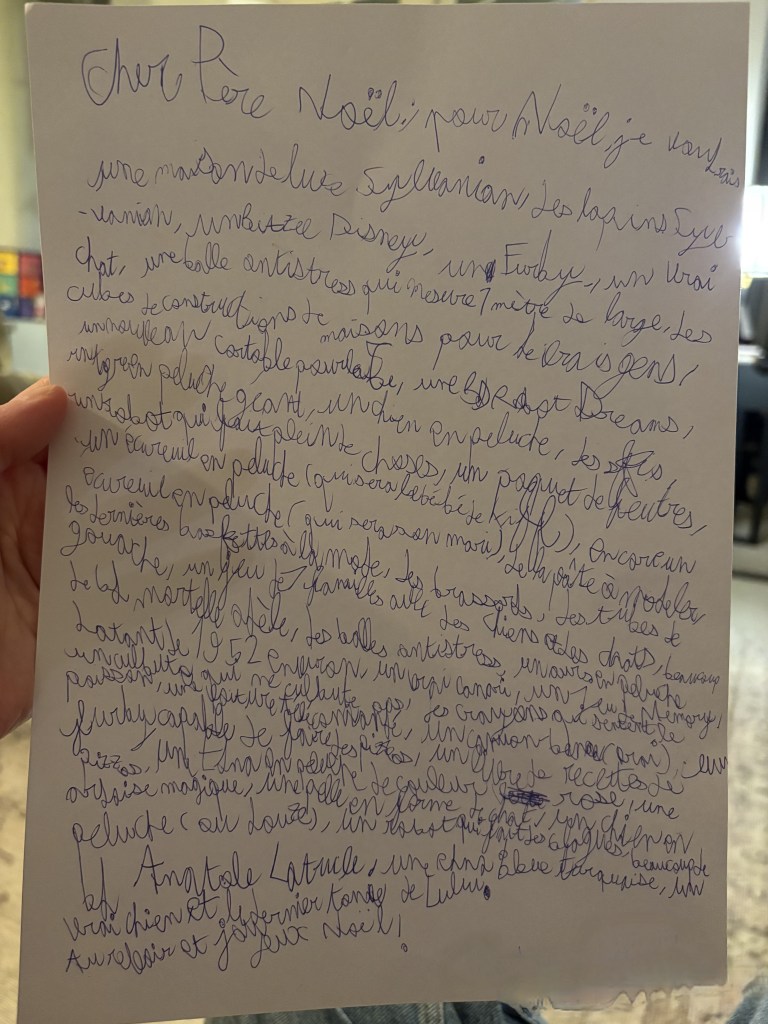 Cher Père Noël, pour Noël, je voudrais
une maison de luxe Sylvanian, des lapins Sylv
-vanian, un puzzle Disney, un Furby, un vrai
chat, une balle antistress qui mesure 1 mètre de large, des
cubes de constructions de maisons pour de vrais gens,
un nouveau cartable pour, une BD Robot Dreams,
en peluche géant, un chien en peluche, des
un robot qui fait plein de choses, un paquet de feutres,
un écureuil en peluche (qui sera le bébé de), encore un
écureuil en peluche (qui sera son mari), de la pâte à modeler,
les dernières baskettes à la mode, des brassards, des tubes de
gouache, un jeu de 7 familles avec des chiens et des chats, beaucoup
de bd mortelle adèle, des balles antistress, un ours en peluche
datant de 1952 environ, un vrai canari, un jeu de Memory,
un culbuto qui ne culbute pas, des crayons qui sentent le
poisson, une voiture télécommandé, un camion benne (vrai), un
furby capable de faire des pizzas, un livre de recettes de
pizzas, un en peluche, de couleur rose, une
ardoise magique, une en forme de chat, un chien en
peluche (ou douze), un robot qui fait des blagues, beaucoup de
bd Anatole Latuile, une bleue turquoise, un
vrai chien et le dernier tome de Lulu.
Au revoir et joyeux Noël!